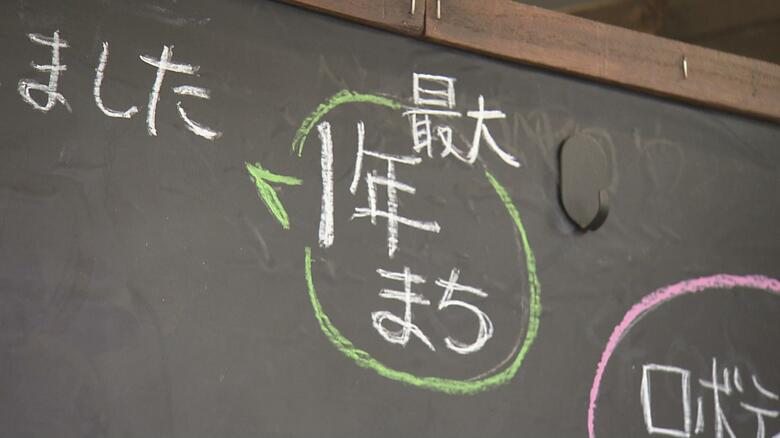 ました
最大
1年
まち
ロボ